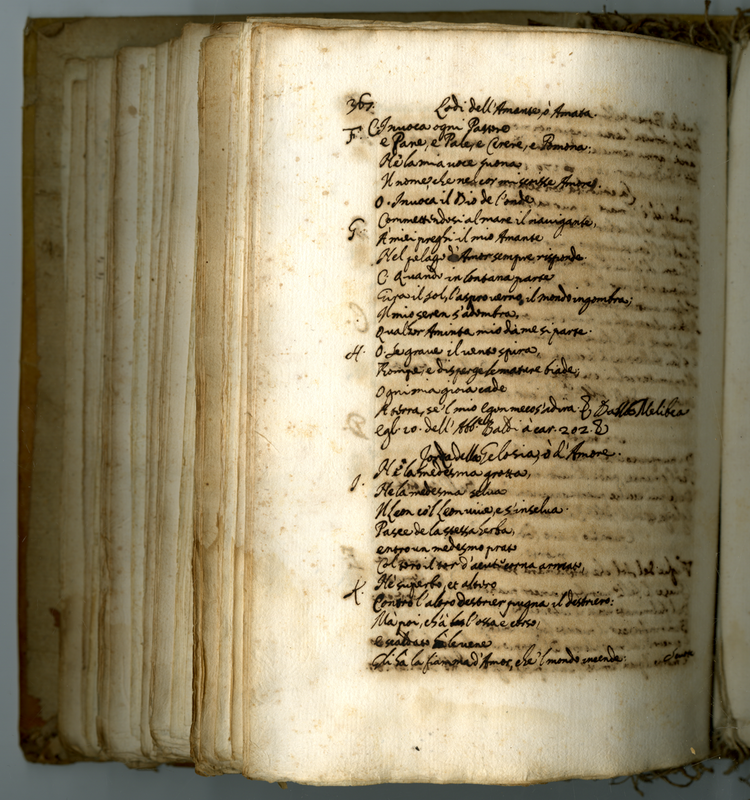 367. Lodi dell'Amante, ò Amata.
F. C. Invoca ogni Pastore
e Pane, e Pale, e Cerere, e Pomona;
Nè la mia voce suona,
Il nome, che nel cor mi scrisse Amore.
O. Invoca il Dio de l'onde
G. Commettendosi al mare il navigante,
A' miei preghi il mio Amante
Nel pelago d'Amor sempre risponde.
C. Quando in lontana parte
Gira il sol, l'aspro verno il mondo ingombra;
Il mio seren s'adombra,
Qualhor Aminta mio da me si parte.
H. O. Se grave il vento spira,
Rompe, e disperge le mature biade;
Ogni mia gioia cade
A terra, se'l mio meco s'adira Dalla Melibea
egl. 10. dell'Abb.e Baldi à car. 202.
Forza della Gelosia, ò d'Amore.
I. Nè la medesma grotta,
Nè la medesma selva
Il Leon co'l Leon vive, e s'inselva.
Pasce de la stessa herba,
entro un medesmo prato
Col toro il tor d'acute corna armato,
K. Nè superbo, et altero
Contro l'altro destrier pugna il destriero:
Mà poi, ch'à l'ossa è corso,
e scaldato le vene
Gli hà la fiamma d'Amor, che'l mondo incende: